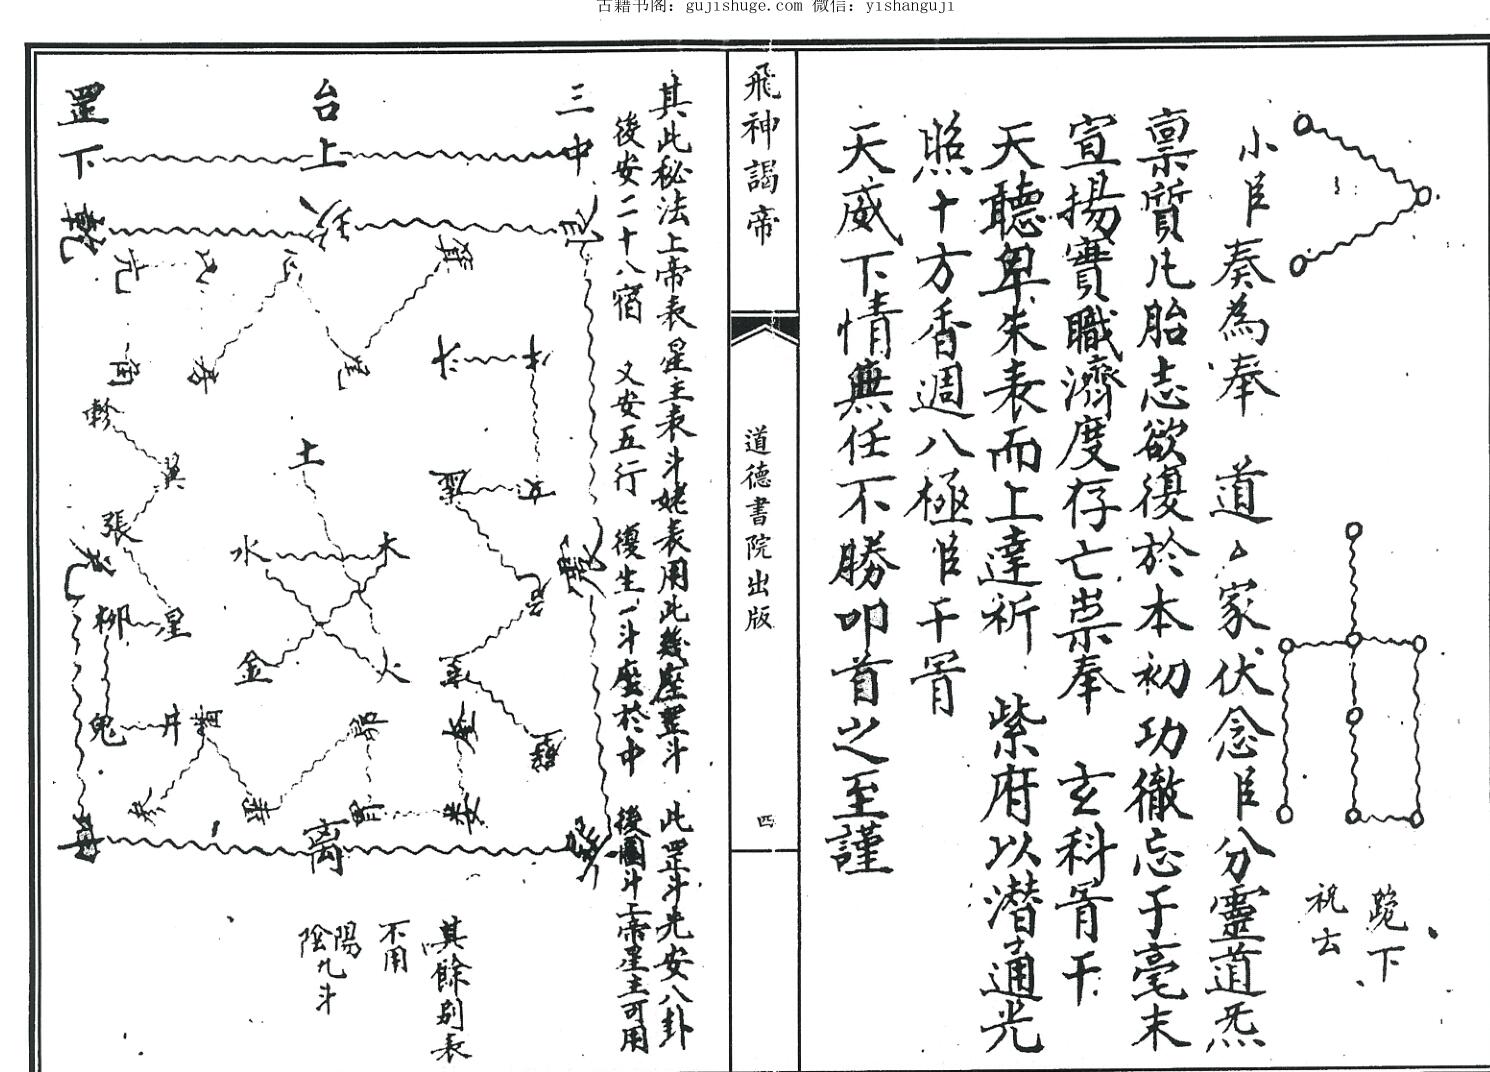 古籍书阁：gujishuge.com 微信：yishanguji
跪下
祝去
小臣奏為奉 道、家伏念臣分靈道炁
禀質凡胎志欲復於本初功徹忘于毫末
宣揚寶職濟度存亡崇奉 玄科胥干
天聽卑朱表而上達祈 紫府以潛通光
照十方香週八極臣干胥
天威下情無任不勝叩首之至謹
飛神謁帝
道德書院出版
四
其此秘法上帝表星主表斗姥表用此幾座罡斗 此罡斗先安八卦
後安二十八宿 又安五行 復生一斗座於中 後圖斗上帝星主可用
三 台 罡
中 上 下
乾
亢 心 箕
角 尾
軫 斗 牛
翼 土 女
張 水 木 震
柳 星 金 火
鬼 井 畢 昴 婁
離
其餘別表
不用
陽
陰九斗